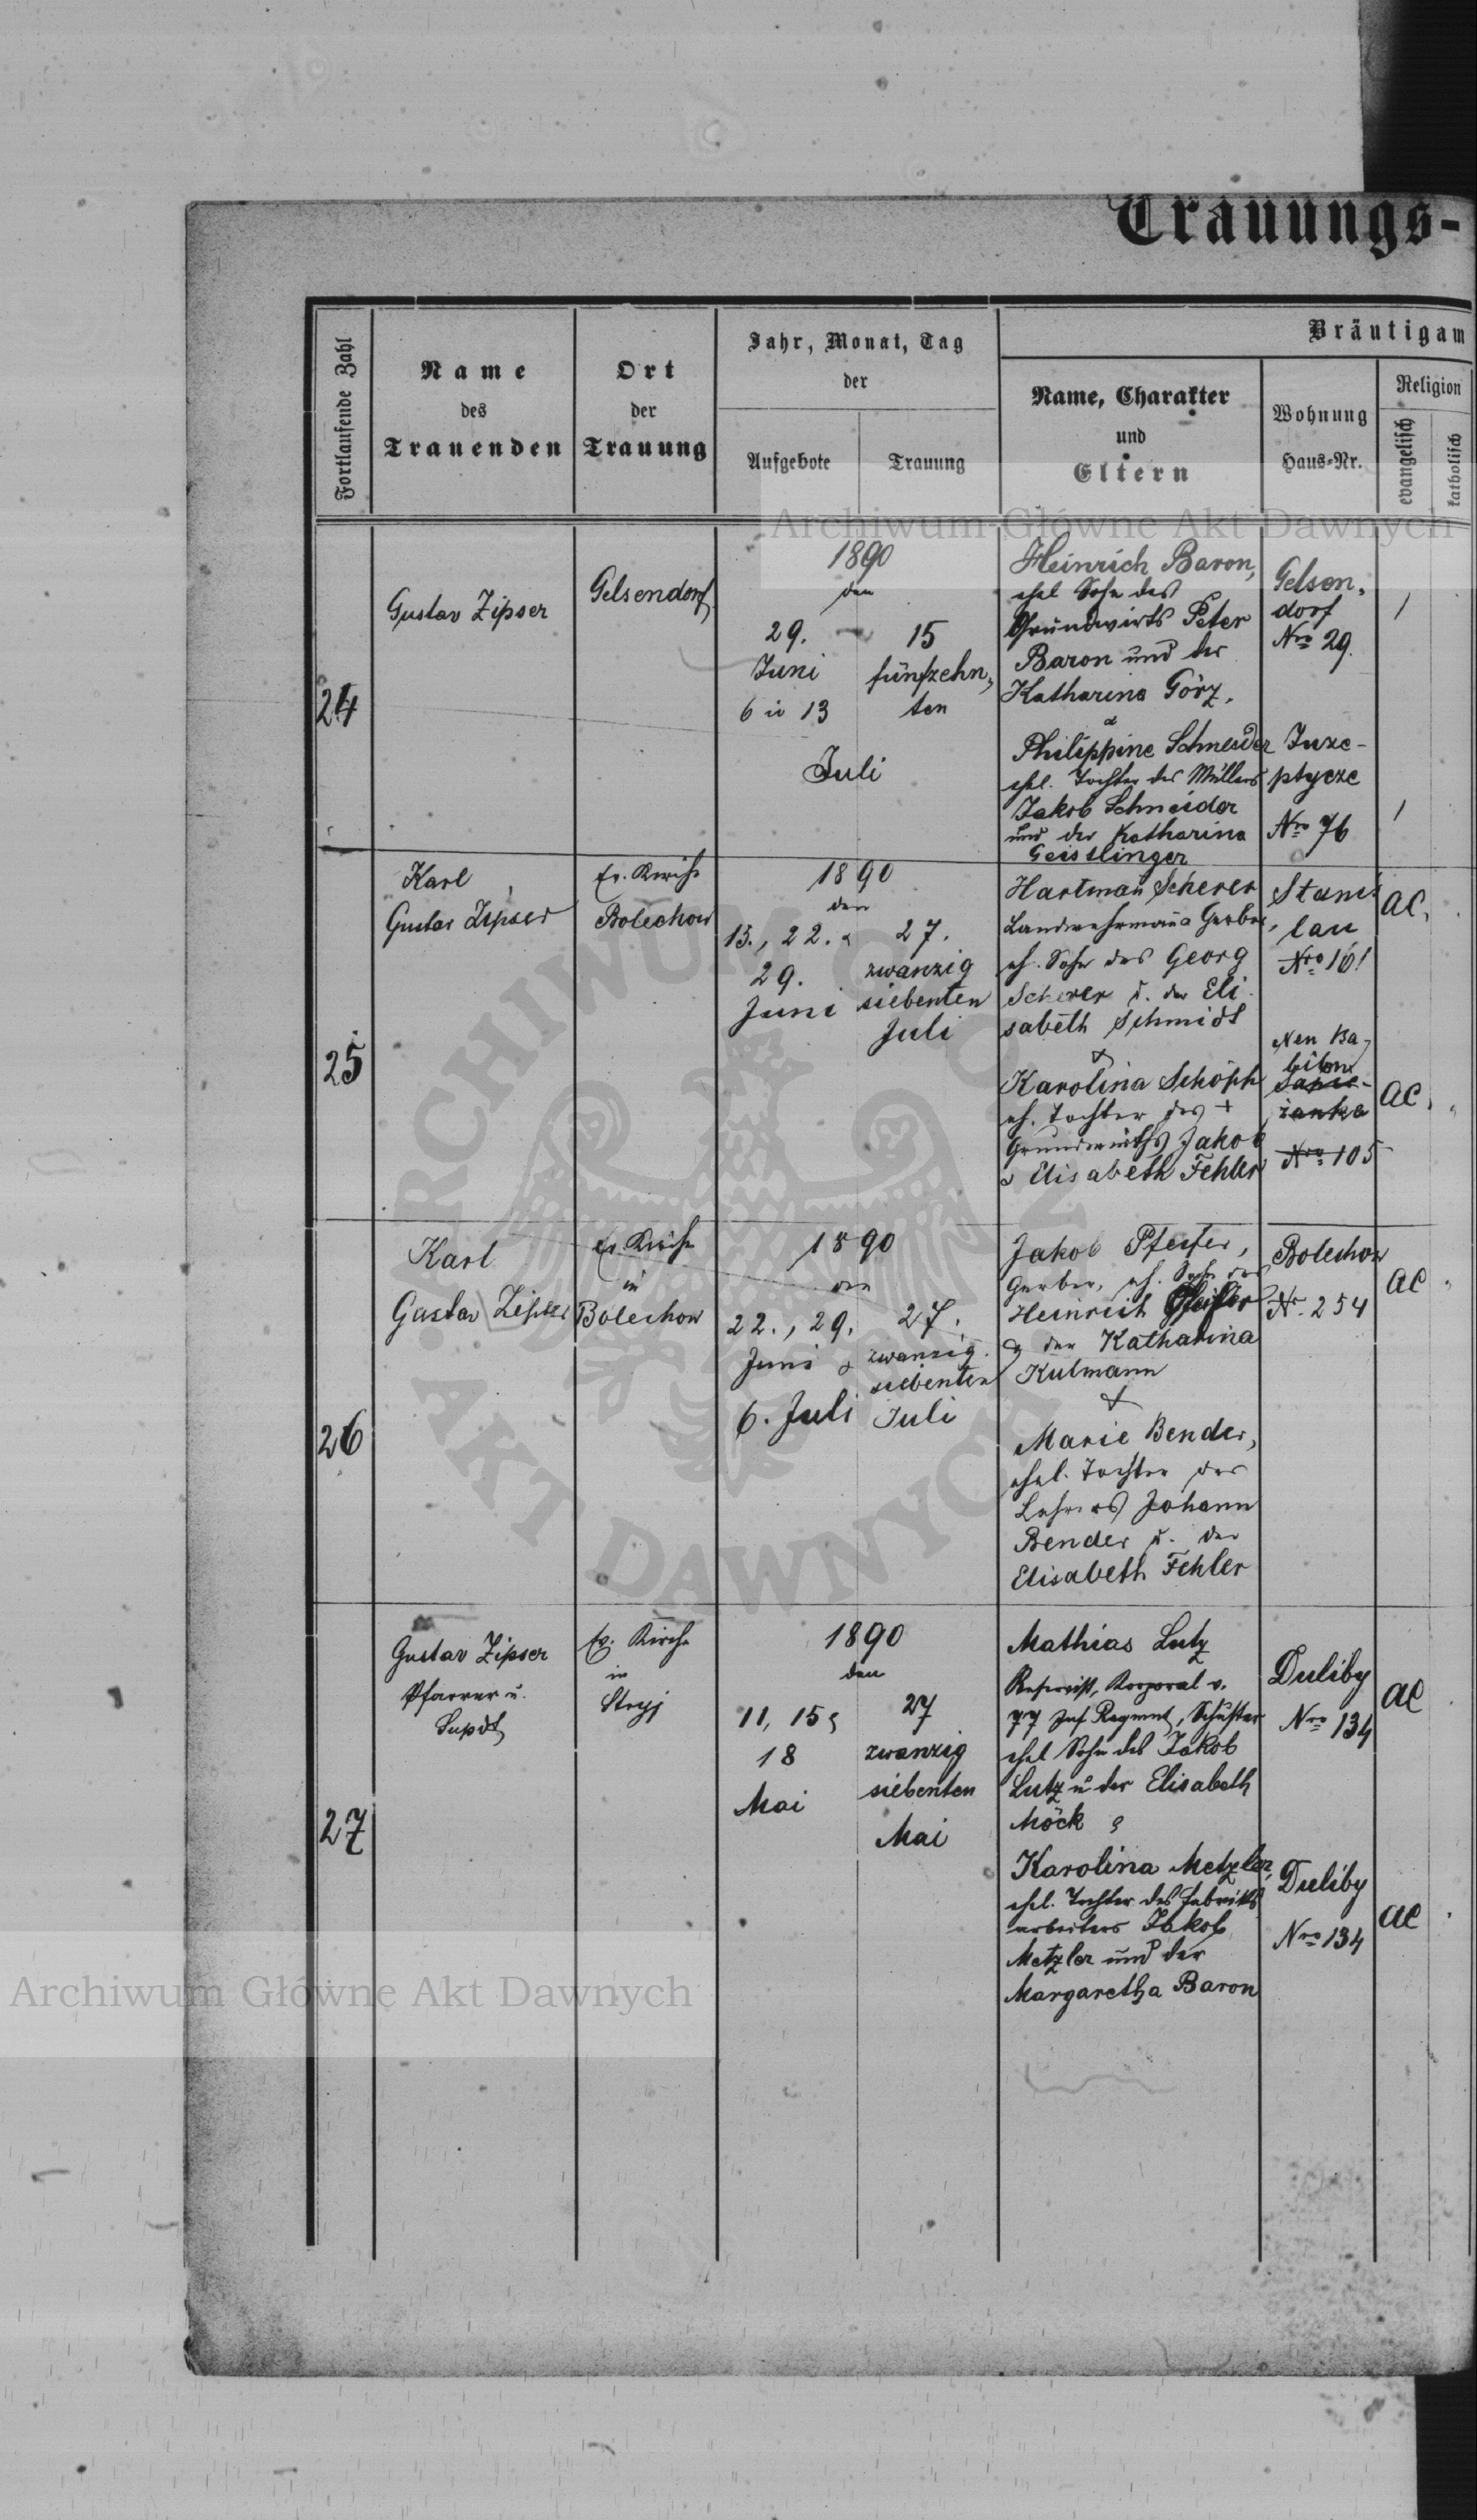 Trauungs-
Fortlaufende Zahl
Name
des
Trauenden
Ort
der
Trauung
Jahr, Monat, Tag
der
Aufgebote
Trauung
Bräutigam
Name, Charakter
und
Eltern
Wohnung
Haus-Nr.
Religion
evangelisch
katholisch
Archiwum Główne Akt Dawnych
24
Gustav Zipser
Gelsendorf
1890
den
29.
Juni
6 u 13
15
fünfzehn,
ten
Juli
Heinrich Baron,
ehel Sohn des
Grundwirts Peter
Baron und der
Katharina Görz,
&
Philippine Schneider
ehel. Tochter des Müllers
Jakob Schneider
und der Katharina
Geisslinger
Gelsen,
dorf
Nro 29.
Juze-
ptycze
Nro 76
/
/
25
Karl
Gustav Zipser
Ev. Kirche
Bolechow
1890
den
15., 22. &
29.
Juni
27.
zwanzig
siebenten
Juli
Hartman Scherer
Landwehrmann Gerber,
eh. Sohn des Georg
Scherer u. der Eli
sabeth Schmidt
&
Karolina Schöph
eh. Tochter des +
Grundwirths Jakob
& Elisabeth Fehler
Stanis
lau
Nro 101
Neu Ba-
bilon
Nro 105
AC.
AC.
26
Karl
Gustav Zipser
Ev Kirche
in
Bolechow
1890
den
22., 29.
Juni &
6. Juli
27.
zwanzig
siebenten
Juli
Jakob Pfeifer,
Gerber, eh. Sohn des
Heinrich Pfeifer
& der Katharina
Kulmann
&
Marie Bender,
ehel. Tochter des
Lehrers Johann
Bender u. der
Elisabeth Fehler
Bolechow
Nr. 254
AC
27
Gustav Zipser
Pfarrer u.
Supdt
Ev. Kirche
in
Stryj
1890
den
11, 15 &
18
Mai
27
zwanzig
siebenten
Mai
Mathias Lutz
Reservist, Korporal v.
77 Inf Regment, Schuster
ehel Sohn des Jakob
Lutz u der Elisabeth
Möck &
Karolina Metzler,
ehel. Tochter des Fabriks
arbeiters Jakob
Metzler und der
Margaretha Baron
Duliby
Nro 134
Duliby
Nro 134
AC
AC
Archiwum Główne Akt Dawnych
ARCHIWUM GŁÓWNE
AKT DAWNYCH